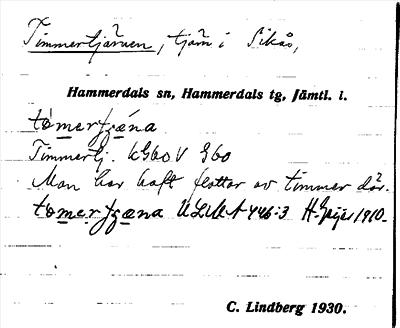 Timmertjärnen, tjärn i Sikås,
Hammerdals sn, Hammerdals tg, Jämtl. l.
Timmertj. k G60 V G60
Man har haft flottar av timmer där.
ULMA 446:3 H. Geijer 1910.
C. Lindberg 1930.